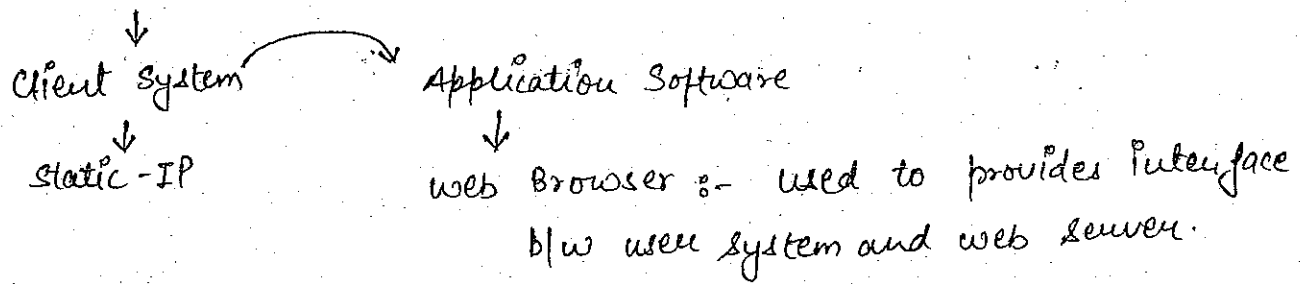 ↓
Client System → Application Software
↓ ↓
Static-IP web Browser :- used to provides interface
b/w user system and web server.